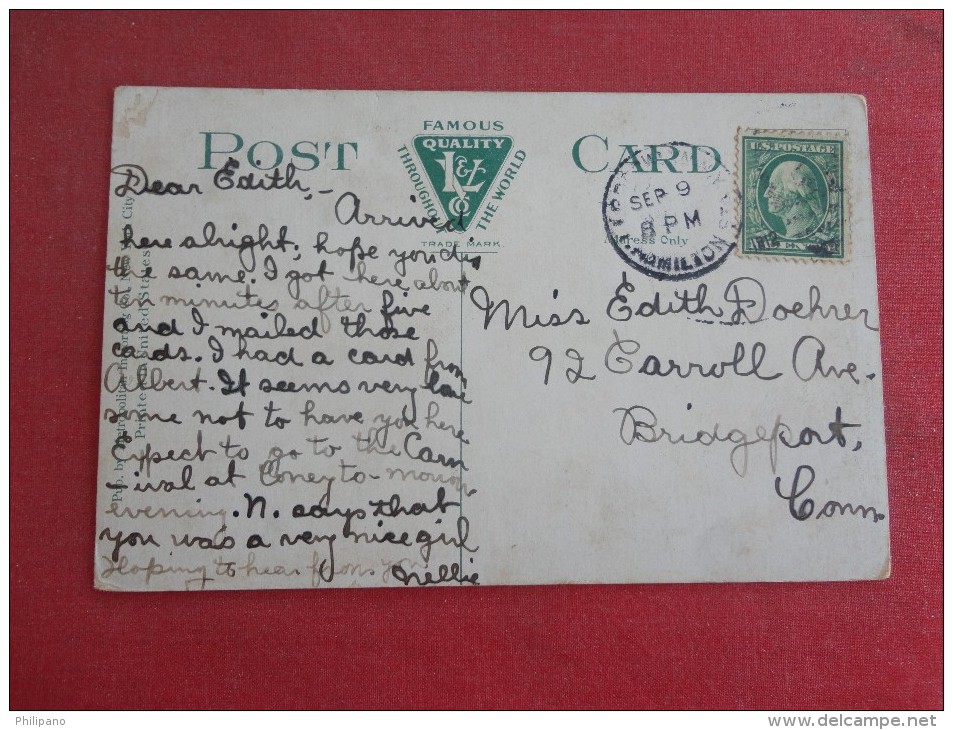 POST CARD
FAMOUS
QUALITY
THROUGHOUT THE WORLD
L & Co
TRADE MARK.
Address Only
SEP 9
8 PM
HAMILTON
U.S. POSTAGE
Dear Edith,-
Arrived
here alright; hope you did
the same. I got here about
ten minutes after five
and I mailed those
cards. I had a card from
Albert. It seems very lone
some not to have you here
Expect to go to the Carn
-ival at Coney to-morrow
evening. N. says that
you was a very nice girl
Hoping to hear from you
Nellie
Miss Edith Doehrer
92 Carroll Ave.
Bridgeport,
Conn.
Pub. by Metropolitan City
Printed in United States
Philipano
www.delcampe.net